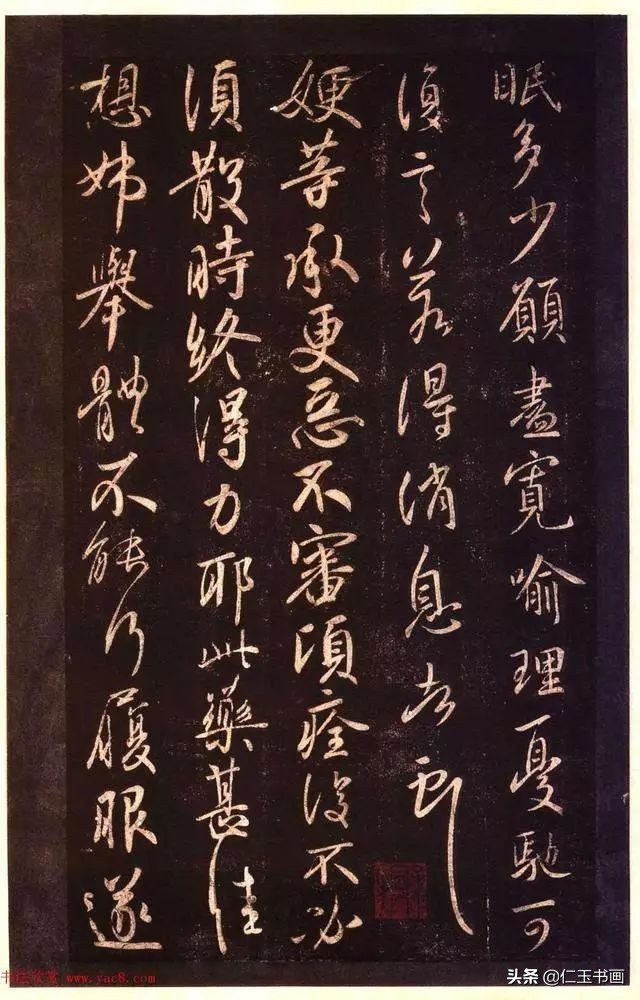 眠多少願盡寬喻理憂馳可
復言若得消息
㛐等承更惡不審頃痊復不必
須散時終得力耶此藥甚佳
想姊舉體不能行履眼遂
书法欣赏 www.yac8.com
头条 @仁玉书画